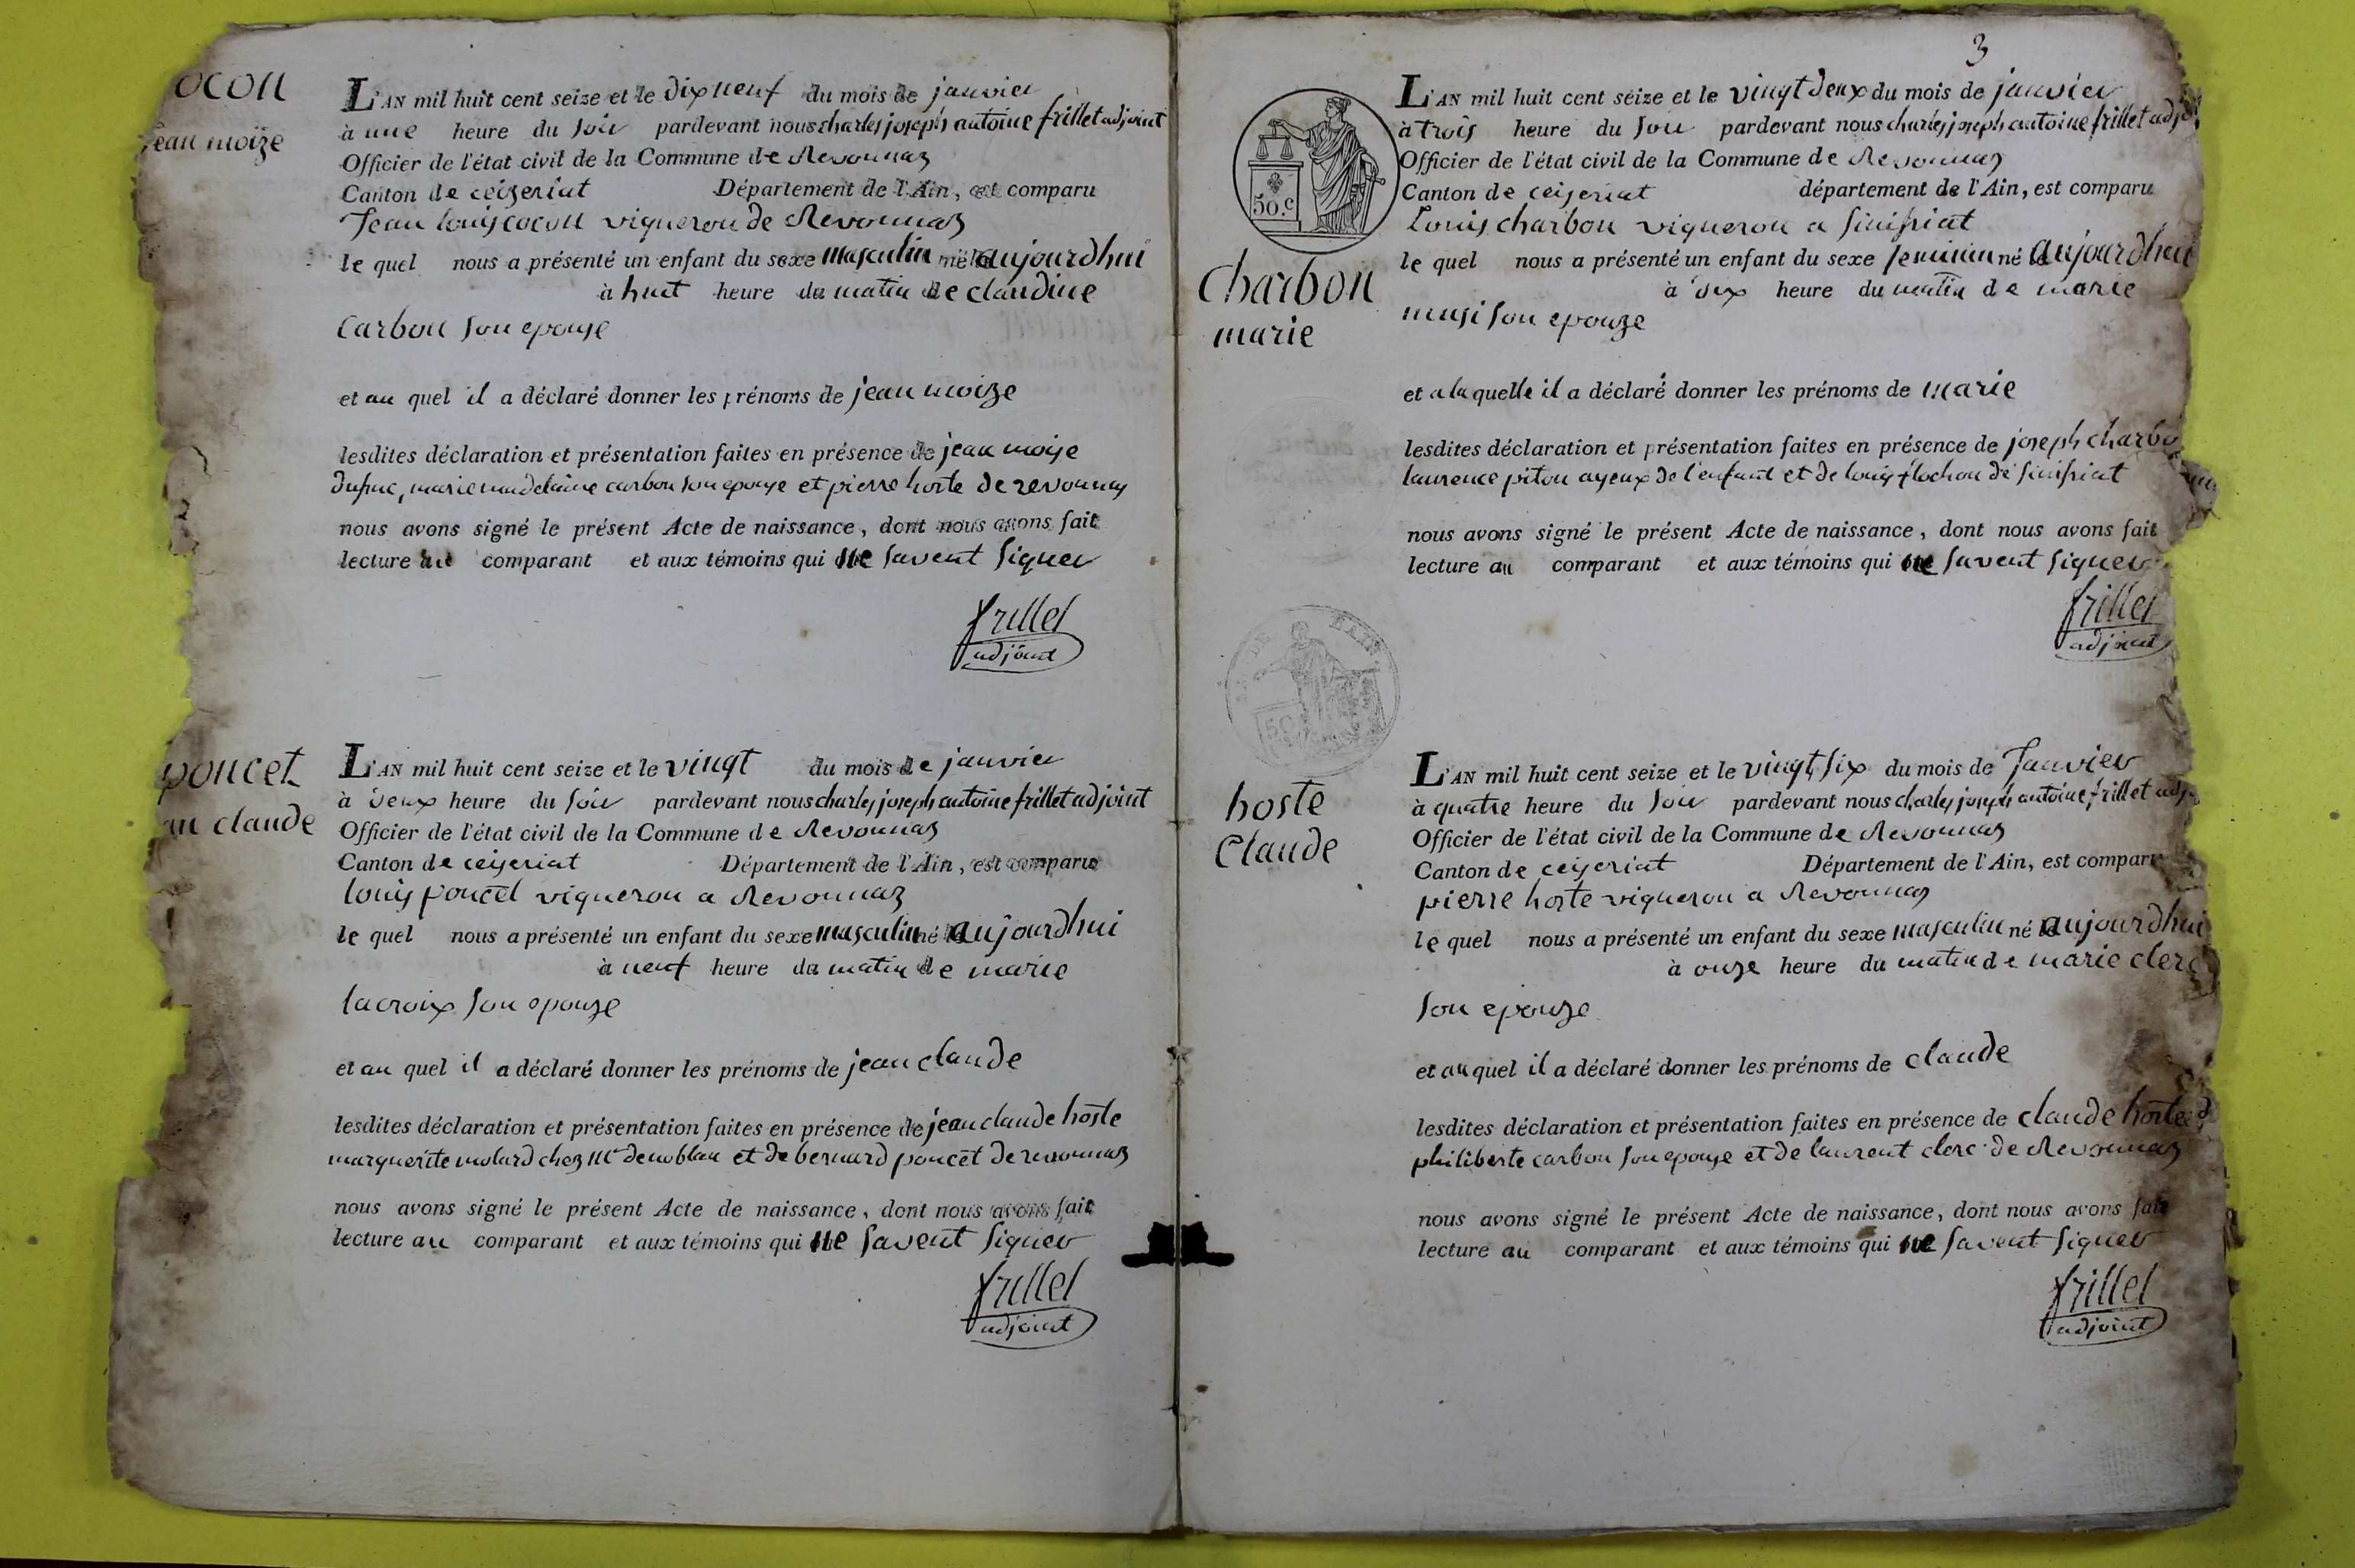 ocon
jean moize
L'AN mil huit cent seize et le dix neuf du mois de janvier
à une heure du soir pardevant nous charles joseph antoine frillet adjoint
Officier de l'état civil de la Commune de Revonnaz
Canton de ceizeriat Département de l'Ain, est comparu
Jean louis cocon vigneron de Revonnaz
le quel nous a présenté un enfant du sexe masculin né le aujourdhui
à huit heure du matin de claudine
carbon son epouse
et au quel il a déclaré donner les prénoms de jean moize
lesdites déclaration et présentation faites en présence de jean moise
dufuc, marie maudelaine carbon son epouse et pierre hoste de revonnas
nous avons signé le présent Acte de naissance, dont nous avons fait
lecture au comparant et aux témoins qui ne savent signer
frillet
adjoint
poncet
an claude
L'AN mil huit cent seize et le vingt du mois de janvier
à deux heure du soir pardevant nous charles joseph antoine frillet adjoint
Officier de l'état civil de la Commune de Revonnas
Canton de ceiseriat Département de l'Ain, est comparu
louis poncet vigneron a Revonnaz
le quel nous a présenté un enfant du sexe masculin né le aujourdhui
à neuf heure du matin de marie
lacroix son epouze
et au quel il a déclaré donner les prénoms de jean claude
lesdites déclaration et présentation faites en présence de jean claude hoste
marguerite molard chez mr denoblan et de bernard poncet de revonnaz
nous avons signé le présent Acte de naissance, dont nous avons fait
lecture au comparant et aux témoins qui ne savent signer
frillet
adjoint
3
50.c
charbon
marie
L'AN mil huit cent seize et le vingt deux du mois de janvier
à trois heure du soir pardevant nous charles joseph antoine frillet adjo
Officier de l'état civil de la Commune de Revonnaz
Canton de ceiseriat département de l'Ain, est comparu
Louis charbon vigneron a
le quel nous a présenté un enfant du sexe feminin né le aujourdhui
à dix heure du matin de marie
musi son epouze
et a la quelle il a déclaré donner les prénoms de marie
lesdites déclaration et présentation faites en présence de joseph charbo
laurence piton ayeux de l'enfant et de louis flochon de
nous avons signé le présent Acte de naissance, dont nous avons fait
lecture au comparant et aux témoins qui ne savent signer
frillet
adjoint
hoste
Claude
L'AN mil huit cent seize et le vingt six du mois de Janvier
à quatre heure du soir pardevant nous charles joseph antoine frillet adjo
Officier de l'état civil de la Commune de Revonnas
Canton de ceiseriat Département de l'Ain, est comparu
pierre hoste vigneron a Revonnas
le quel nous a présenté un enfant du sexe masculin né le aujourdhui
à onze heure du matin de marie clerc
son epouze
et au quel il a déclaré donner les prénoms de claude
lesdites déclaration et présentation faites en présence de claude hoste
philiberte carbon son epouse et de laurent clerc de Revonnaz
nous avons signé le présent Acte de naissance, dont nous avons fait
lecture au comparant et aux témoins qui ne savent signer
frillet
adjoint